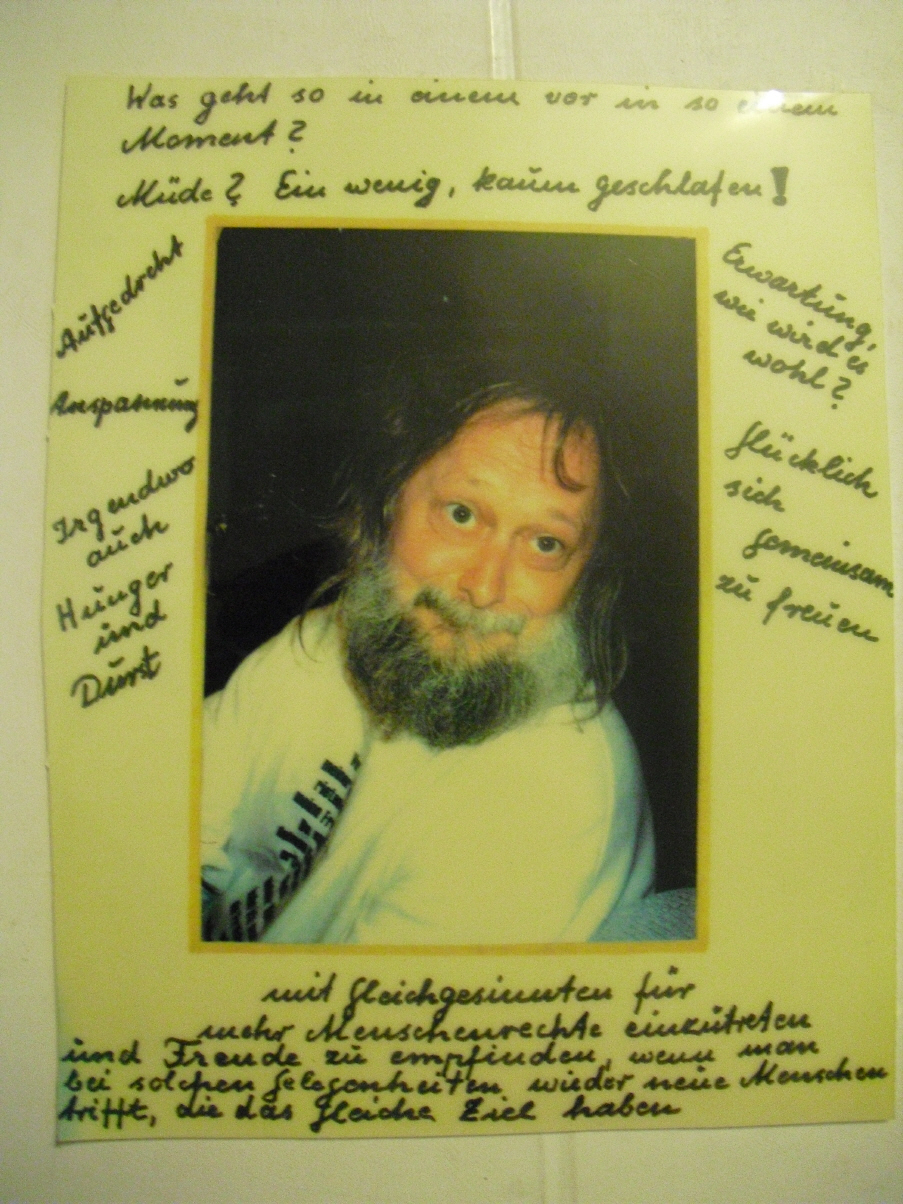 Was geht so in einem vor in so einem
Moment?
Müde? Ein wenig, kaum geschlafen!
Aufgedreht
Anspannung
Irgendwo
auch
Hunger
und
Durst
Erwartung,
wie wird es
wohl?
Glücklich
sich
gemeinsam
zu freuen
mit Gleichgesinnten für
mehr Menschenrechte einzutreten
und Freude zu empfinden, wenn man
bei solchen Gelegenheiten wieder neue Menschen
trifft, die das gleiche Ziel haben